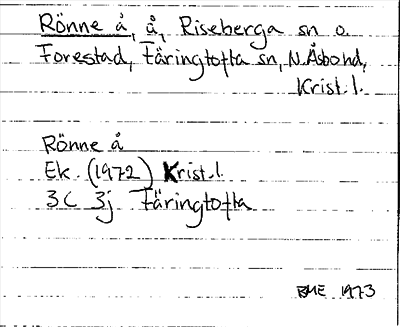 Rönne å, å, Riseberga sn o.
Forestad, Färingtofta sn, N.Åsbohd,
Krist.l.
Rönne å
Ek. (1972) Krist.l.
3C 3j Färingtofta
BME 1973